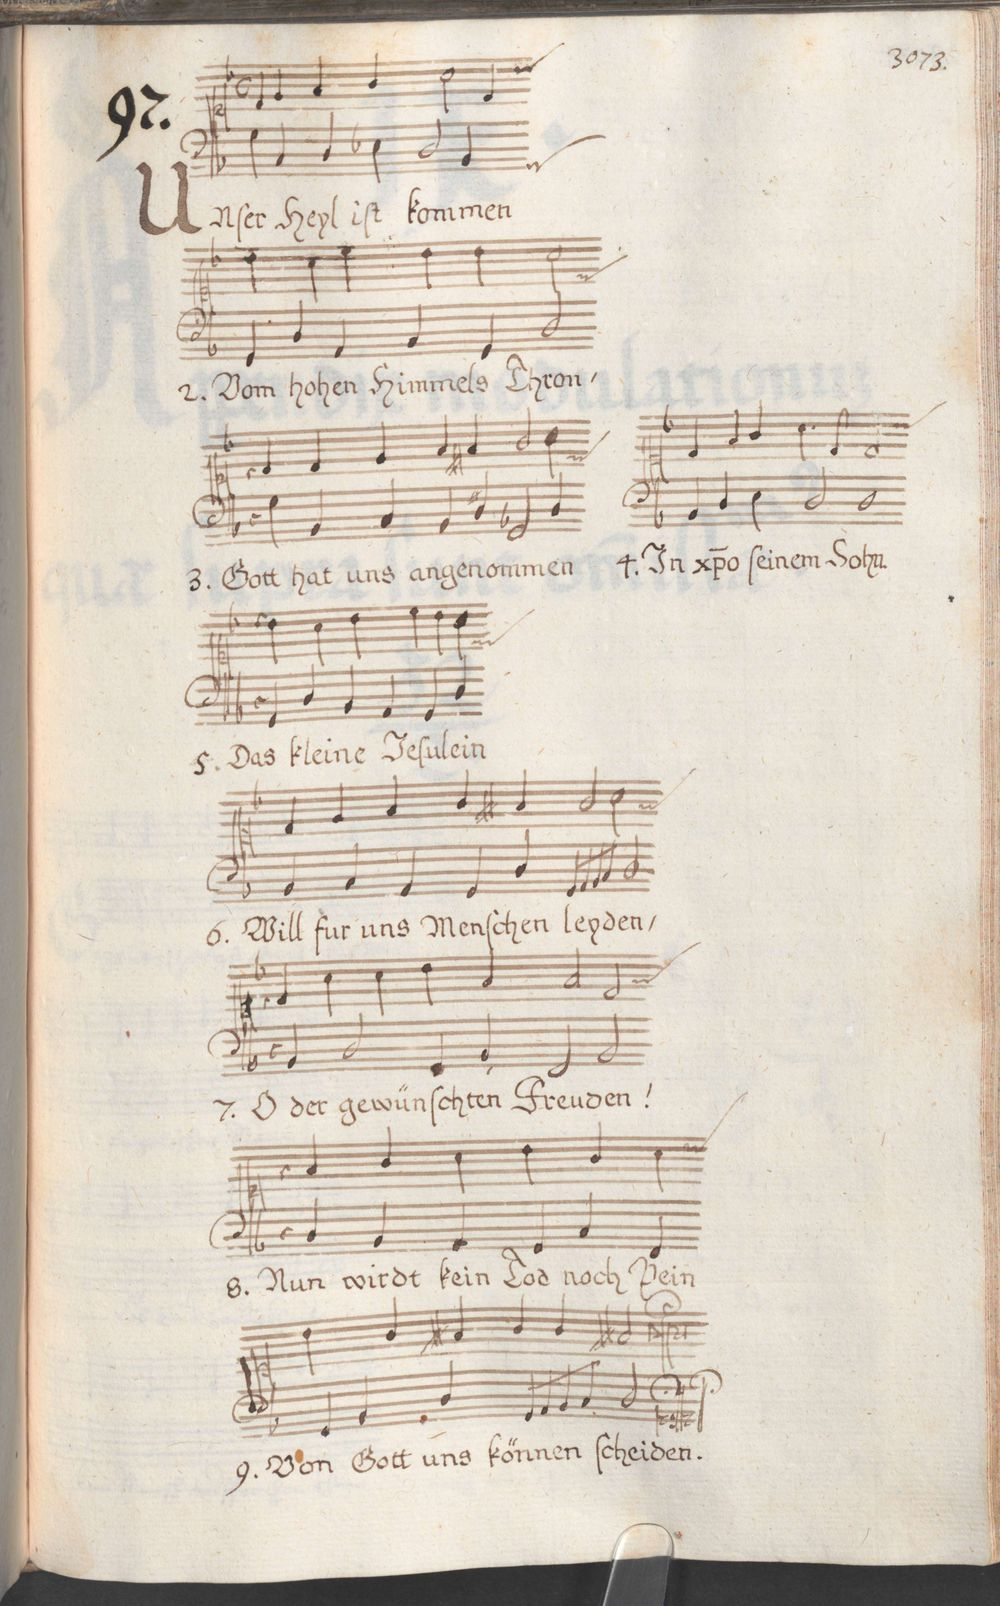 3073.
97.
Unser Heyl ist kommen
2. Vom hohen Himmels Thron,
3. Gott hat uns angenommen
4. In xp̄o seinem Sohn.
5. Das kleine Jesulein
6. Will fur uns Menschen leyden,
7. O der gewünschten Freuden!
8. Nun wirdt kein Tod noch Pein
9. Von Gott uns können scheiden.